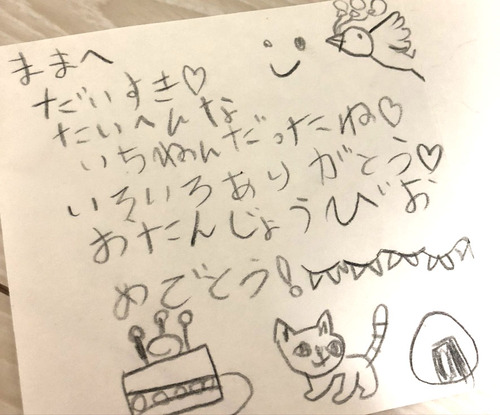 ままへ
だいすき♡
たいへんな
いちねんだったね♡
いろいろありがとう♡
おたんじょうびお
めでとう!